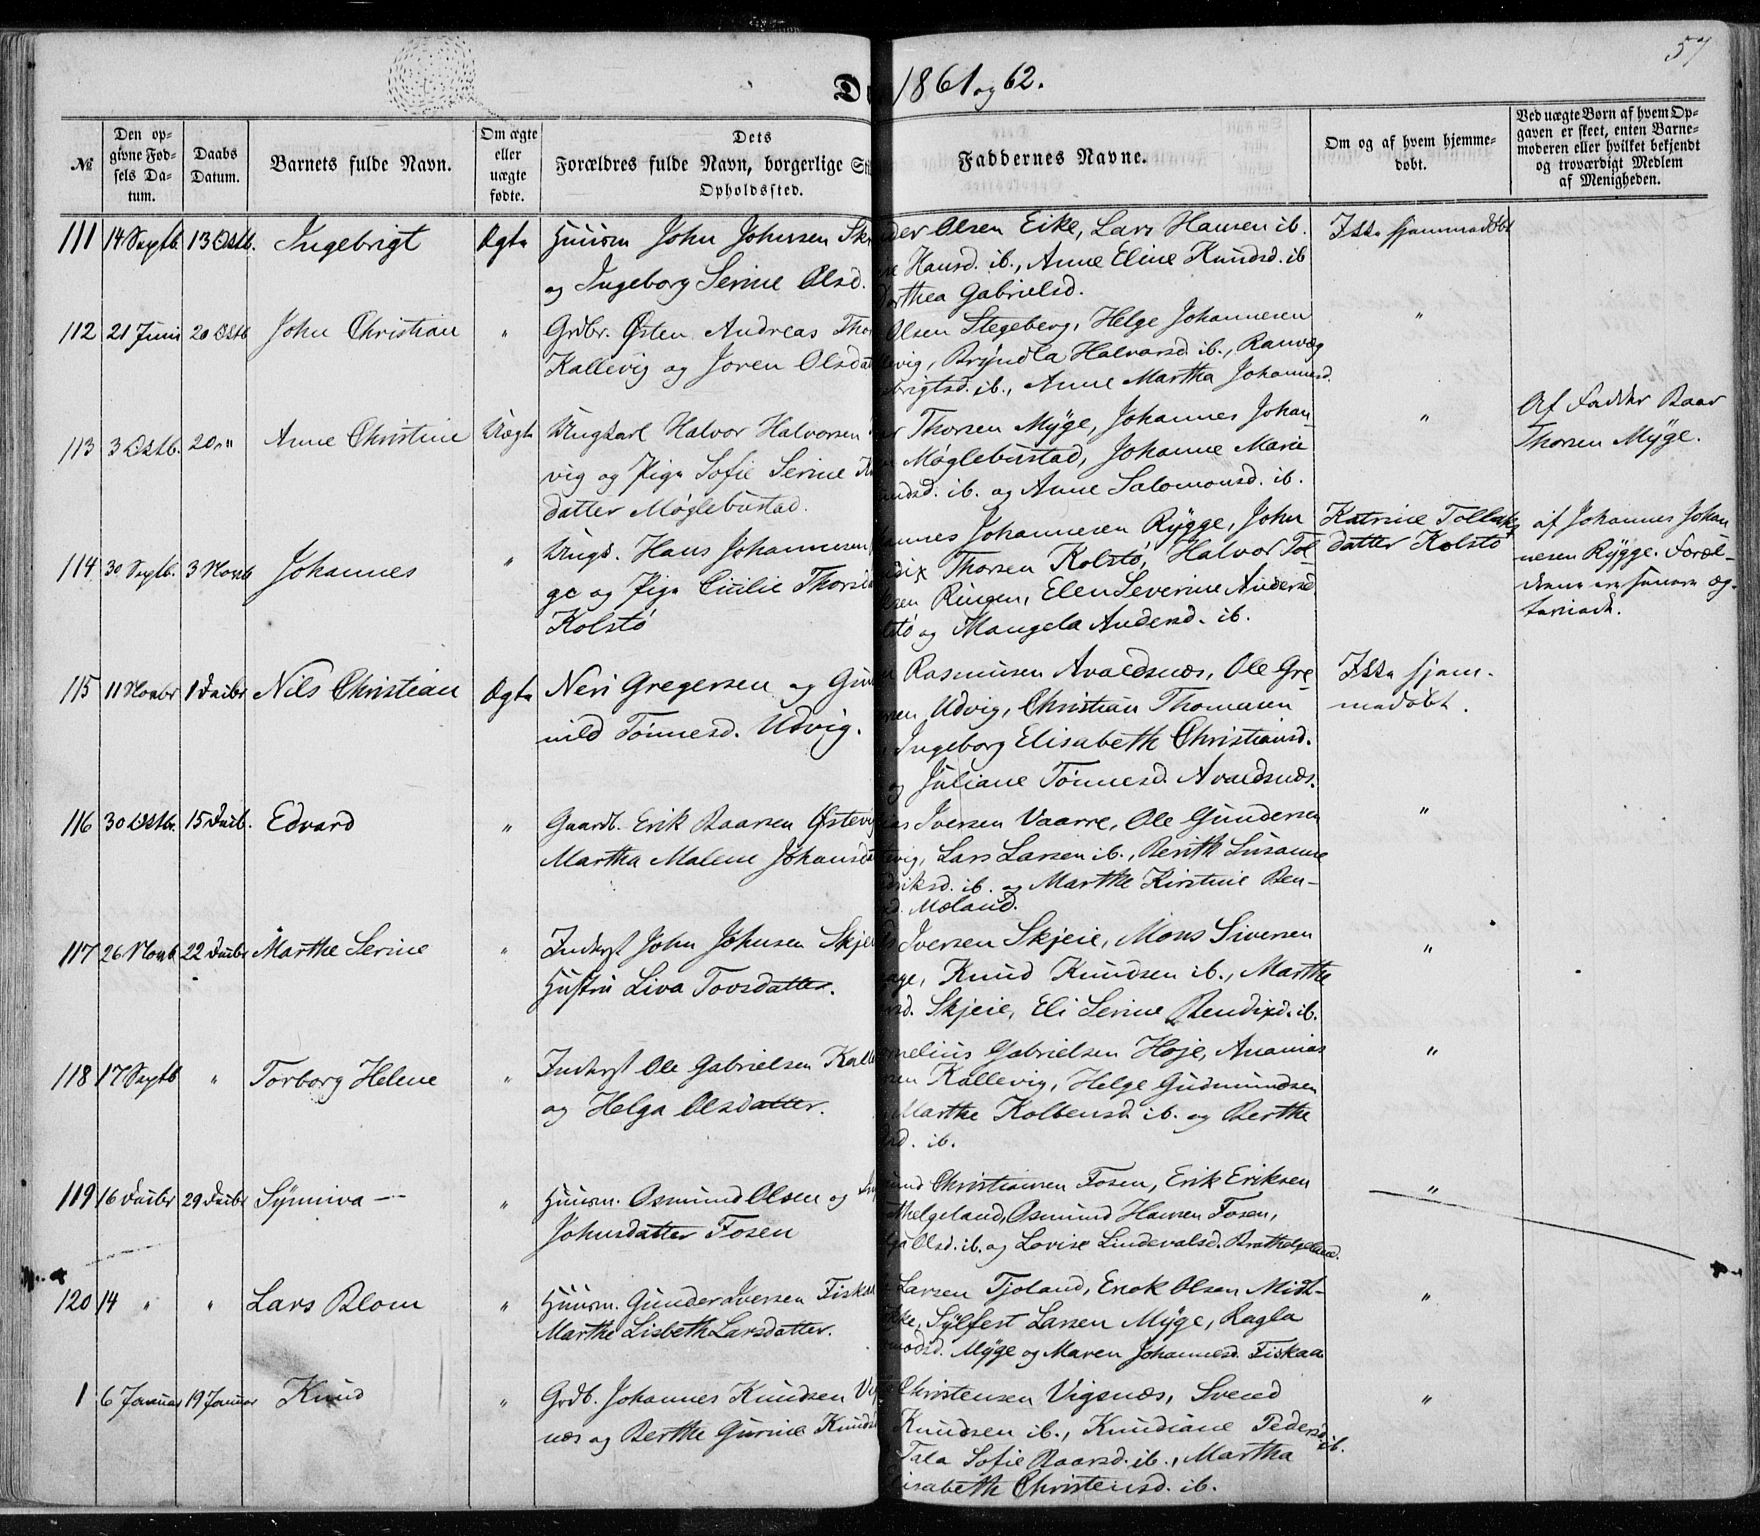 57
1861 og 62.
№
Den opgivne Fødsels Datum.
Daabs Datum.
Barnets fulde Navn.
Om ægte eller uægte fødte.
Dets Forældres fulde Navn, borgerlige
Opholdssted.
Faddernes Navne.
Om og af hvem hjemmedøbt.
Ved uægte Børn af hvem Opgaven er skeet, enten Barnemoderen eller hvilket bekjendt og troværdigt Medlem af Menigheden.
111 14 Septb. 13 Octb. Ingebrigt Ægte Huusm John Johnsen
og Ingeborg Serine Olsd.
Olsen Eike, Lars Hansen ib.
Hansd. ib., Anne Eline Knudsd. ib
Gabrielsd.
Ikke hjemmedøbt
112 21 Juni 20 Octb John Christian " Grdbr. Østen Andreas
Kallevig og Joren
Olsen Stegeberg, Helge Johannesen
Bryndla Halvorsd. ib., Ranveg
ib., Anne Martha Johannesd.
"
113 3 Octb. 20 " Anne Christine Uægte Ungkarl Halvor Halvorsen
vig og Pige Sofie Serine
datter Møglebustad.
Thorsen Myge, Johannes Johan
Møglebustad, Johanne Marie
ib. og Anne Salomonsd. ib.
"
Af Fadder Baar
Thorsen Myge.
114 30 Septb. 3 Novb Johannes " Ungk. Hans Johannesen
ge og Pige Cicilie
Kolstø
Johannesen Rygge, John
Thorsen Kolstø, Halvor Tol
Ringen, Elen Severine Andersd
og Mangela Andersd. ib.
Katrine Tollaks
datter Kolstø
af Johannes Johan
nesen Rygge. Foræl-
drene ere senere æg-
teviede.
115 11 Novbr 1 Decbr Nils Christian Ægte Neri Gregersen og
nild Tønnesd. Udvig.
Rasmusen Avaldsnæs, Ole Gre-
Udvig, Christian Thomasen
Ingeborg Elisabeth Christiansd.
og Juliane Tønnesd. Avaldsnæs.
Ikke hjem-
medøbt.
116 30 Octbr. 15 Decb. Edvard " Gaardb. Erik Baarsen
Martha Malene
Iversen Vaarre, Ole Gundersen
Lars Larsen ib., Berith Susanne
ib. og Marthe Kirstine Ben-
Moland.
"
117 26 Novb 22 Decbr Marthe Serine " Inderst John Johnsen
Hustru Liva Tovsdatter.
Iversen Skjeie, Mons Siversen
Knud Knudsen ib., Marthe
Skjeie, Eli Serine Bendixd. ib.
"
118 17 Septb " Torborg Helene " Inderst Ole Gabrielsen
og Helga Olsdatter.
Gabrielsen Høje, Ananias
Kallevig, Helge Gudmundsen
Marthe Kolbensd. ib. og Berthe
ib.
"
119 16 Decbr 29 Decbr Synniva " Huusm. Osmund Olsen og
Johnsdatter Fosen
Christiansen Fosen, Erik Eriksen
Osmund Hansen Fosen,
ib. og Lovise Lindevalsd. Brathelgeland.
"
120 14 " " Lars Blom " Huusm. Gunder Iversen
Marthe Lisbeth Larsdatter.
Larsen Tjoland, Enok Olsen Midt-
Sylfest Larsen Myge, Ragla
Myge og Maren Johannesd. Fiskaa
"
1 6 Januar 19 Januar Knud " Grdb. Johannes Knudsen
næs og Berthe Gurine
Christensen Vigsnæs, Svend
Knudsen ib., Knudiane Pedersd. ib.
Tala Sofie Baarsd. ib., Martha
Christensd. ib.
"